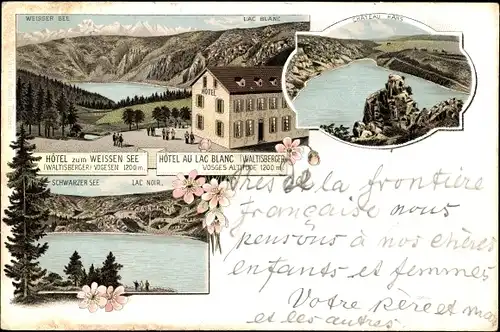 WEISSER SEE
LAC BLANC
CHATEAU HANS
HÔTEL
HÔTEL zum WEISSEN SEE
(WALTISBERGER) VOGESEN 1200 m.
HÔTEL AU LAC BLANC (WALTISBERGER)
VOSGES ALTITUDE 1200 m.
SCHWARZER SEE
LAC NOIR.
Près de la frontière
française nous
pensons à nos chères
enfants et femmes
Votre père et
et les autres